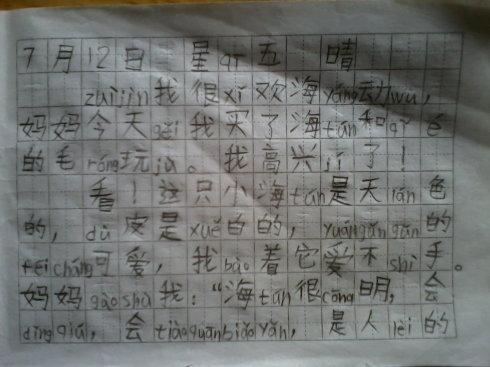 7月12日 星qī五 晴
zuìjìn我很xǐ欢海yáng动wù,
妈妈今天gěi我买了海tún和qǐ é
的毛róng玩jù。我高兴jí了!
看!这只小海tún是天lán色
的,dù皮是xuě白的,yuángǔngǔn的
fēicháng可爱,我bào着它爱不shì手。
妈妈gàosù我:“海tún很cōng明,会
dǐngqiú,会tiàoquānbiǎoyǎn,是人lèi的